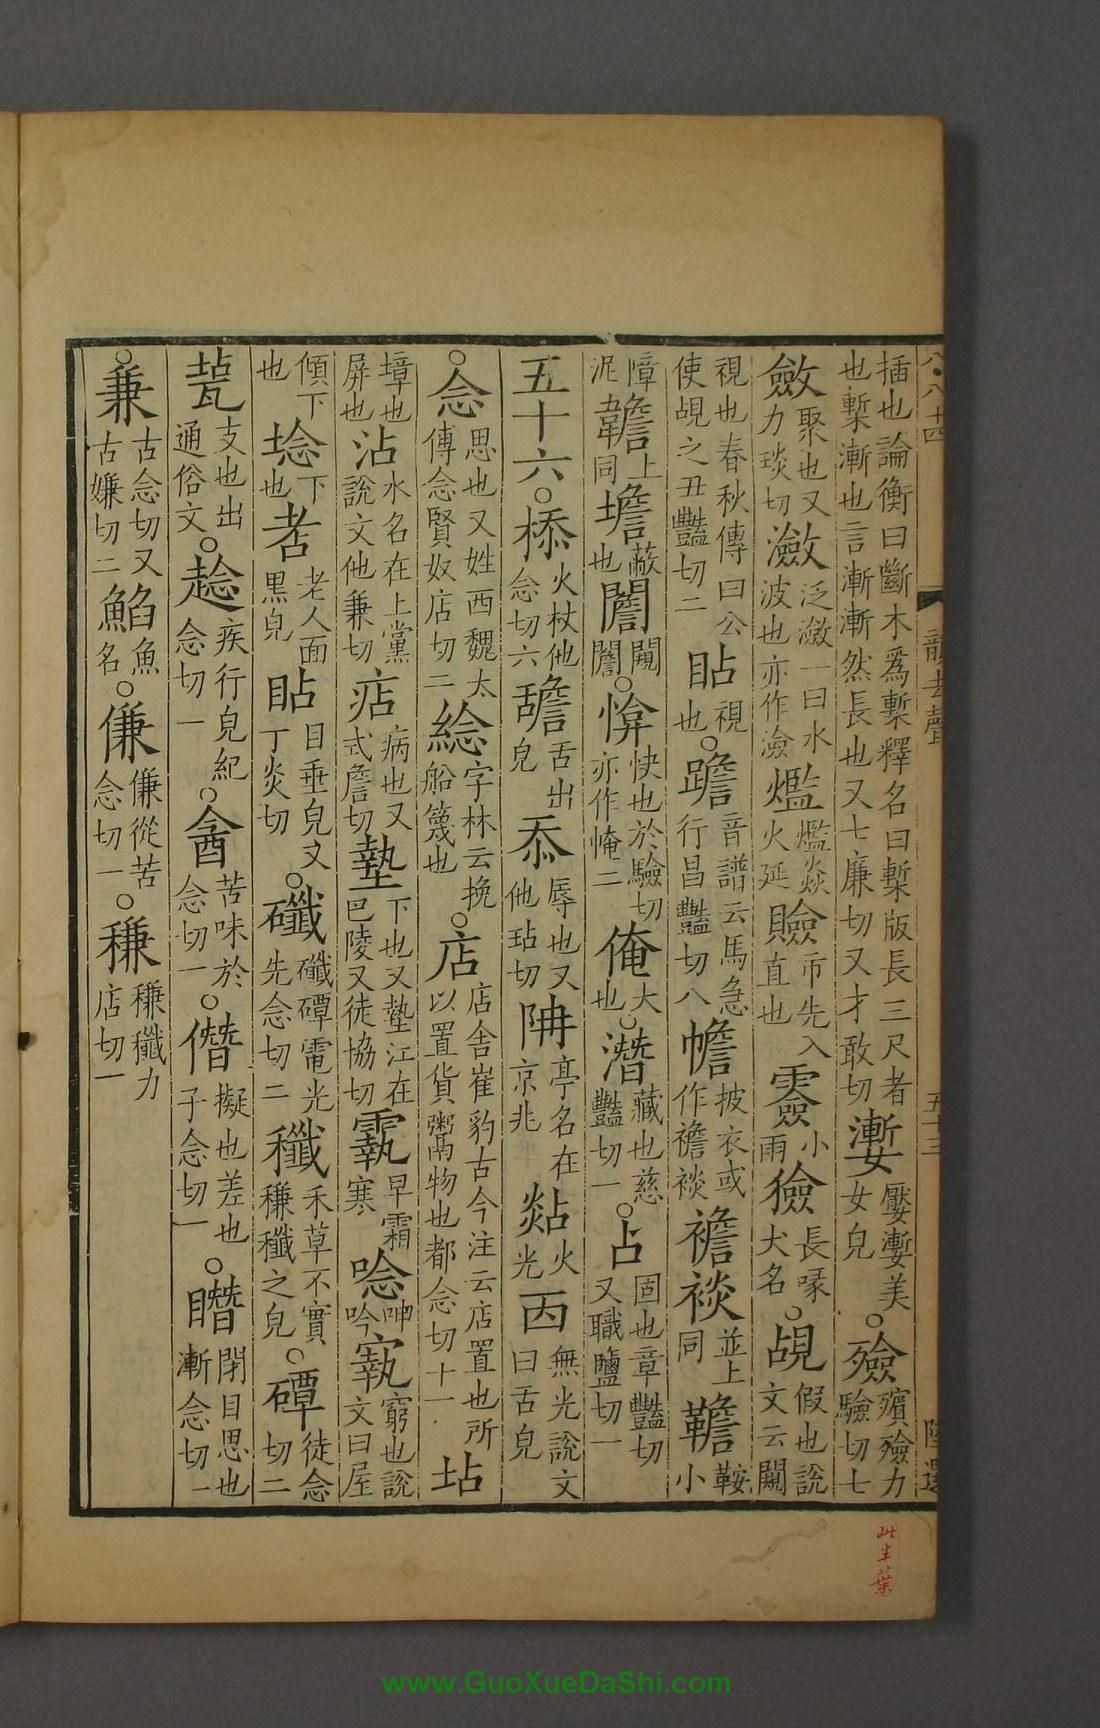 插也論衡曰斷木爲槧釋名曰槧版長三尺者
也槧漸也言漸漸然長也又七廉切又才敢切㜞女皃嬮㜞美○殮殯殮力驗切七
斂聚也又力琰切瀲泛瀲一曰水波也亦作澰爁爁焱火延䞼市先入直也䨄小雨獫長喙犬名○覘假也說文云闚
視也春秋傳曰公使覘之丑豔切二貼視也○蹌音譜云馬急行昌豔切八幨披衣或作襜裧襜裧並上同韂鞍小
障泥韂上同墰蔽也䦲闚䦲○愔快也於驗切亦作㤿二俺大也○潛藏也慈豔切一○占固也章豔切又職鹽切一
五十六○㮇火杖他念切六舚舌出皃忝辱也又他玷切䧃亭名在京兆㶣火光㐁無光說文曰舌皃
○念思也又姓西魏太傅念賢奴店切二䋻字林云挽船篾也○店店舍崔豹古今注云店置也所以置貨鬻物也都念切十一坫
墇也屏也沾水名在上黨說文他兼切痁病也又式詹切墊下也又墊江在巴陵又徒協切霵早霜寒唸呻吟㝪窮也說文曰屋
傾下也埝下也㸃老人面黑皃䀡目垂皃又丁炎切○䃱䃱磹電光先念切二䆎禾草不實䅐䆎之皃○磹徒念切二
㼭支也出通俗文○趝疾行皃紀念切一○酓苦味於念切一○僭擬也差也子念切一○㬱閉目思也漸念切一
○兼古念切又古嫌切二鮥魚名○傔傔從苦念切一○稴稴䆎力店切一
此半葉
www.GuoXueDaShi.com